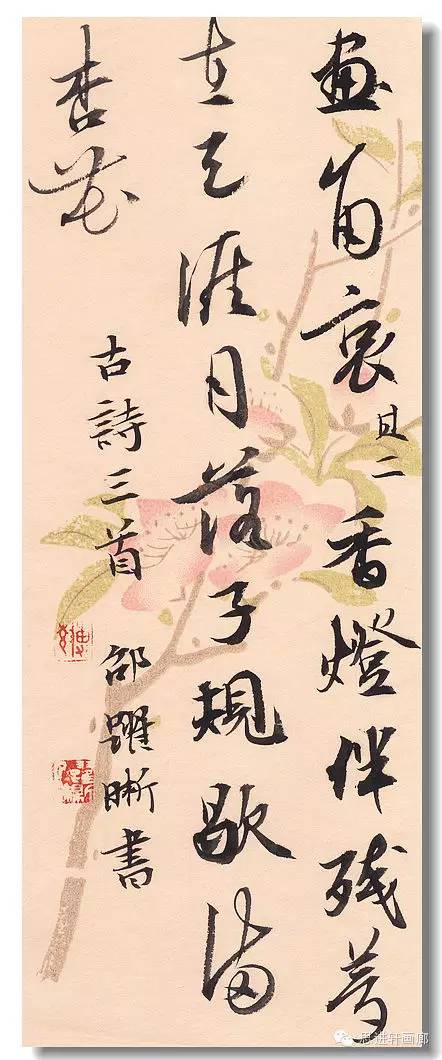 畫角哀 其二 香燈伴残夢
在天涯月落子規歇滿
杏花
古詩三首 邵躍晰書
思进轩画廊